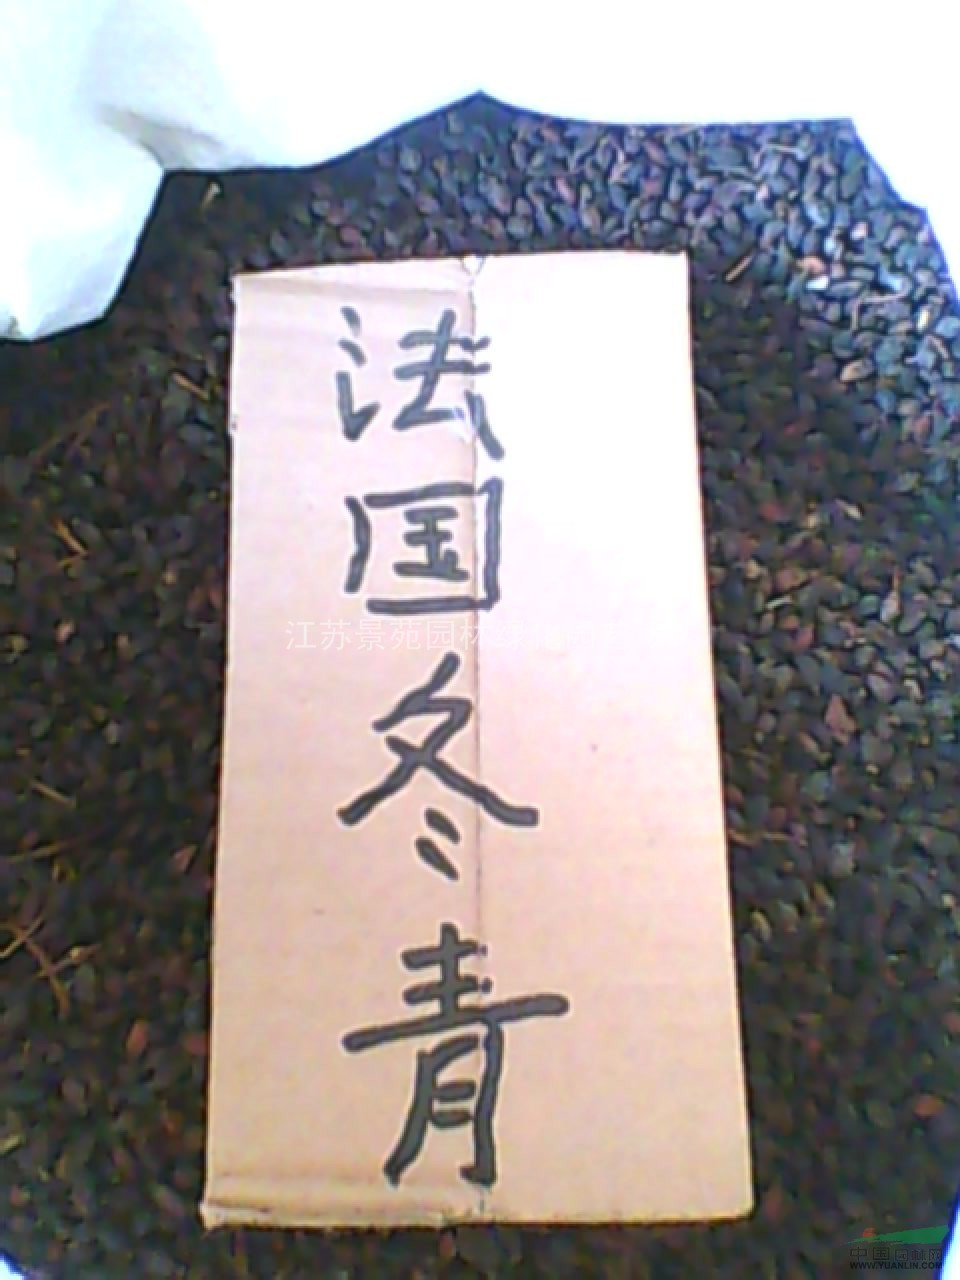 法国冬青
江苏景苑园林
中国园林网
WWW.YUANLIN.COM